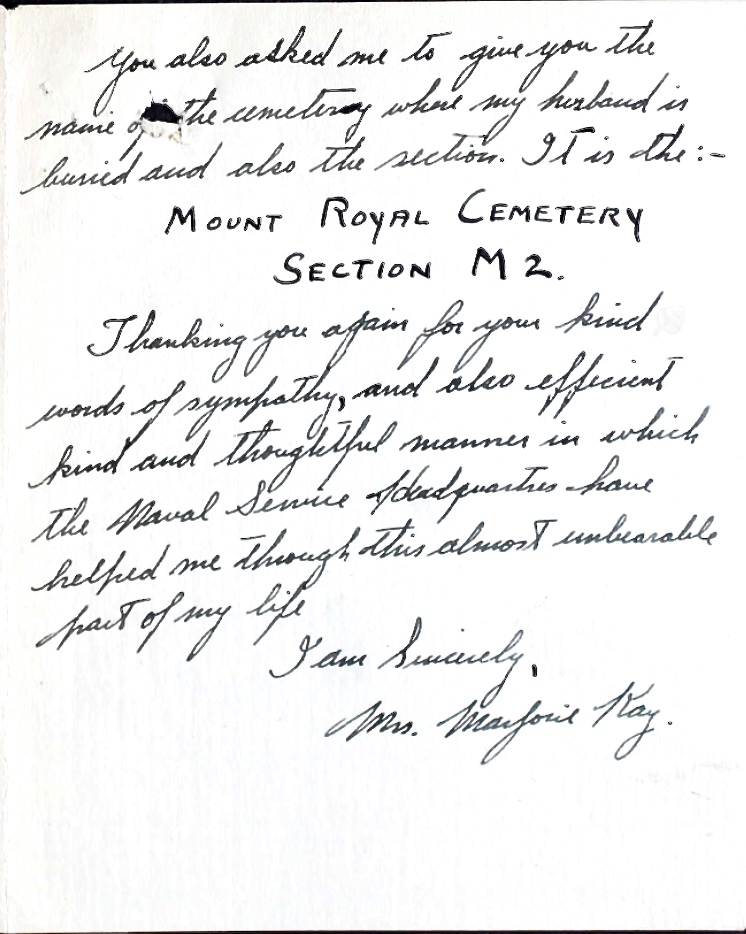 You also asked me to give you the
name of the cemetery where my husband is
buried and also the section. It is the:-
MOUNT ROYAL CEMETERY
SECTION M 2.
Thanking you again for your kind
words of sympathy, and also efficient
kind and thoughtful manner in which
the Naval Service Headquarters have
helped me through this almost unbearable
part of my life
I am Sincerely,
Mrs. Marjorie Kay.